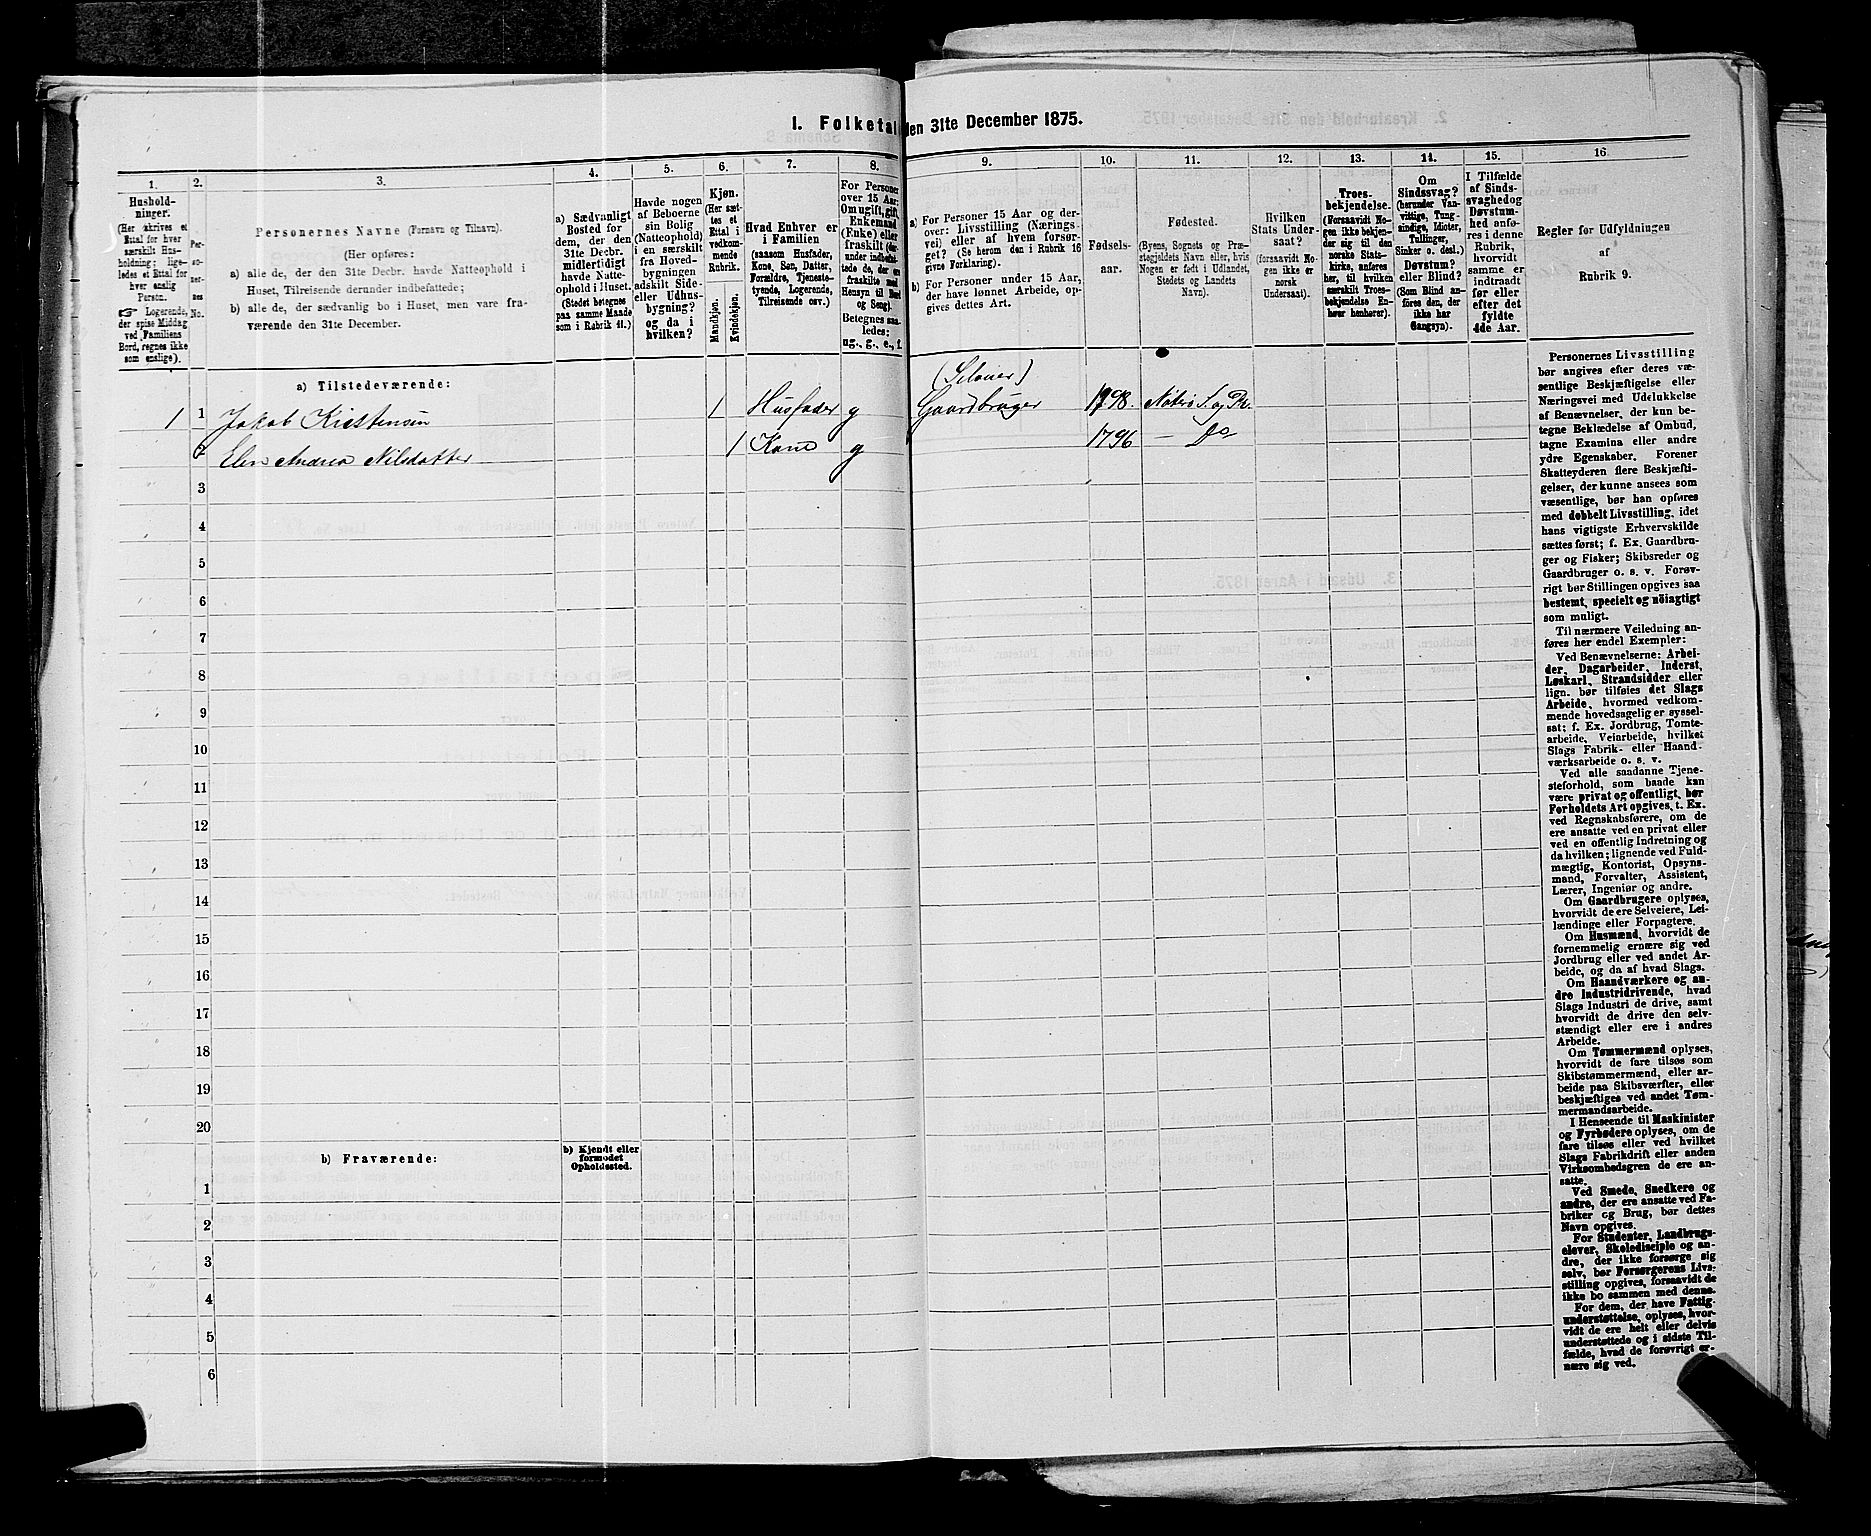 I. Folketal den 31te December 1875.
1.
2.
3.
4.
5.
6.
7.
8.
9.
10.
11.
12.
13.
14.
15.
16
Husholdninger.
(Her skrives et
Ettal for hver
særskilt Husholdning; ligeledes et Ettal for
hver enslig
Person.
☞ Logerende,
der spise Middag
ved Familiens
Bord, regnes ikke
som enslige).
Personernes No.
Personernes Navne (Fornavn og Tilnavn).
(Her opføres:
a) alle de, der den 31te Decbr. havde Natteophold i
Huset, Tilreisende derunder indbefattede;
b) alle de, der sædvanlig bo i Huset, men vare fraværende den 31te December.
a) Sædvanligt
Bosted for
dem, der den
31te Decbr.
midlertidigt
havde Natteophold i Huset.
(Stedet betegnes
paa samme Maade
som i Rubrik 11.)
Havde nogen
af Beboerne
sin Bolig
(Natteophold)
i en særskilt
fra Hovedbygningen
adskilt Side-
eller Udhusbygning?
og da i
hvilken?
Kjøn.
(Her sættes et
Ettal i
vedkommende
Rubrik.
Mandkjøn.
Kvindekjøn.
Hvad Enhver er
i Familien
(saasom Husfader,
Kone, Søn, Datter,
Forældre, Tjenestetyende, Logerende,
Tilreisende osv.)
For Personer
over 15 Aar:
Om ugift, gift,
Enkemand
(Enke) eller
fraskilt
Betegnes saaledes:
ug., g., e., f.
a) For Personer 15 Aar og derover: Livsstilling (Næringsvei) eller af hvem forsørget? (Se herom den i Rubrik 16
givne Forklaring).
b) For Personer under 15 Aar,
der have lønnet Arbeide, opgives dettes Art.
Fødselsaar.
Fødested.
(Byens, Sognets og Præstegjeldets Navn eller, hvis
Nogen er født i Udlandet,
Stedets og Landets
Navn).
Hvilken
Stats Undersaat?
(forsaavidt Nogen ikke er
norsk
Undersaat).
Troesbekjendelse.
(Forsaavidt Nogen ikke bekjender sig til den
norske Statskirke, anføres
her, til hvilken
særskilt Troesbekjendelse Enhver henhører).
Om
Sindssvag?
(herunder Vanvittige, Tungsindige, Idioter,
Tullinger,
Sinker o. desl.)
Døvstum?
eller Blind?
(Som Blind anføres den, der
ikke har
Gangsyn).
I Tilfælde
af Sindssvaghed og
Døvstumhed anføres i denne
Rubrik,
hvorvidt
samme er
indtraadt
før eller
efter det
fyldte
4de Aar.
Regler før Udfyldningen
af
Rubrik 9.
a) Tilstedeværende:
1 1 Jakob Kristensen 1 Husfader g (Seloier) Gaardbruger 1798. Nøterø S. og Pr.
2 Elen Andrea Nilsdatter 1 Kone g 1796 — Do
3
4
5
6
7
8
9
10
11
12
13
14
15
16
17
18
19
20
b) Fraværende:
b) Kjendt eller
formodet
Opholdssted.
1
2
3
4
5
6
Personernes Livsstilling
bør angives efter deres væsentlige Beskjæftigelse eller
Næringsvei med Udelukkelse
af Benævnelser, der kun betegne Beklædelse af Ombud,
tagne Examina eller andre
ydre Egenskaber. Forener
Skatteyderen flere Beskjæftigelser, der kunne ansees som
væsentlige, bør han opføres
med dobbelt Livsstilling, idet
hans vigtigste Erhvervskilde
sættes først; f. Ex. Gaardbruger og Fisker; Skibsreder og
Gaardbruger o. s. v. Forøvrigt bør Stillingen opgives saa
bestemt, specielt og nöiagtigt
som muligt.
Til nærmere Veiledning anføres her endel Exempler:
Ved Benævnelserne: Arbeider, Dagarbeider, Inderst,
Løskarl, Strandsidder eller
lign. bør tilføies det Slags
Arbeide, hvormed vedkommende hovedsagelig er sysselsat; f. Ex. Jordbrug, Tomtearbeide, Veiarbeide, hvilket
Slags Fabrik- eller Haandværksarbeide o. s. v.
Ved alle saadanne Tjenesteforhold, som baade kan
være privat og offentligt, bør
Forholdets Art opgives, t. Ex.
ved Regnskabsførere, om de
ere ansatte ved en privat eller
ved en offentlig Indretning og
da hvilken; lignende ved Fuldmægtig, Kontorist, Opsynsmand, Forvalter, Assistent,
Lærer, Ingeniør og andre.
Om Gaardbrugere oplyses,
hvorvidt de ere Selveiere, Leilændinge eller Forpagtere.
Om Husmænd, hvorvidt de
fornemmelig ernære sig ved
Jordbrug eller ved andet Arbeide, og da af hvad Slags.
Om Haandværkere og andre Industridrivende, hvad
Slags Industri de drive, samt
hvorvidt de drive den selvstændigt eller ere i andres
Arbeide.
Om Tømmermænd oplyses,
hvorvidt de fare tilsøs som
Skibstømmermænd, eller arbeide paa Skibsværfter, eller
beskjæftiges ved andet Tømmermandsarbeide.
I Henseende til Maskinister
og Fyrbødere oplyses, om de
fare tilsøs eller ved hvilket
Slags Fabrikdrift eller anden
Virksomhedsgren de ere ansatte.
Ved Smede, Snedkere og
andre, der ere ansatte ved Fabriker og Brug, bør dettes
Navn opgives.
For Studenter, Landbrugselever, Skoledisciple og andre, der ikke forsørge sig
selv, bør Forsørgerens Livsstilling opgives, forsaavidt de
ikke bo sammen med denne.
For dem, der have Fattigunderstøttelse, oplyses, hvorvidt de ere helt eller delvis
understøttede og i sidste Tilfælde, hvad de forøvrigt ernære sig ved.